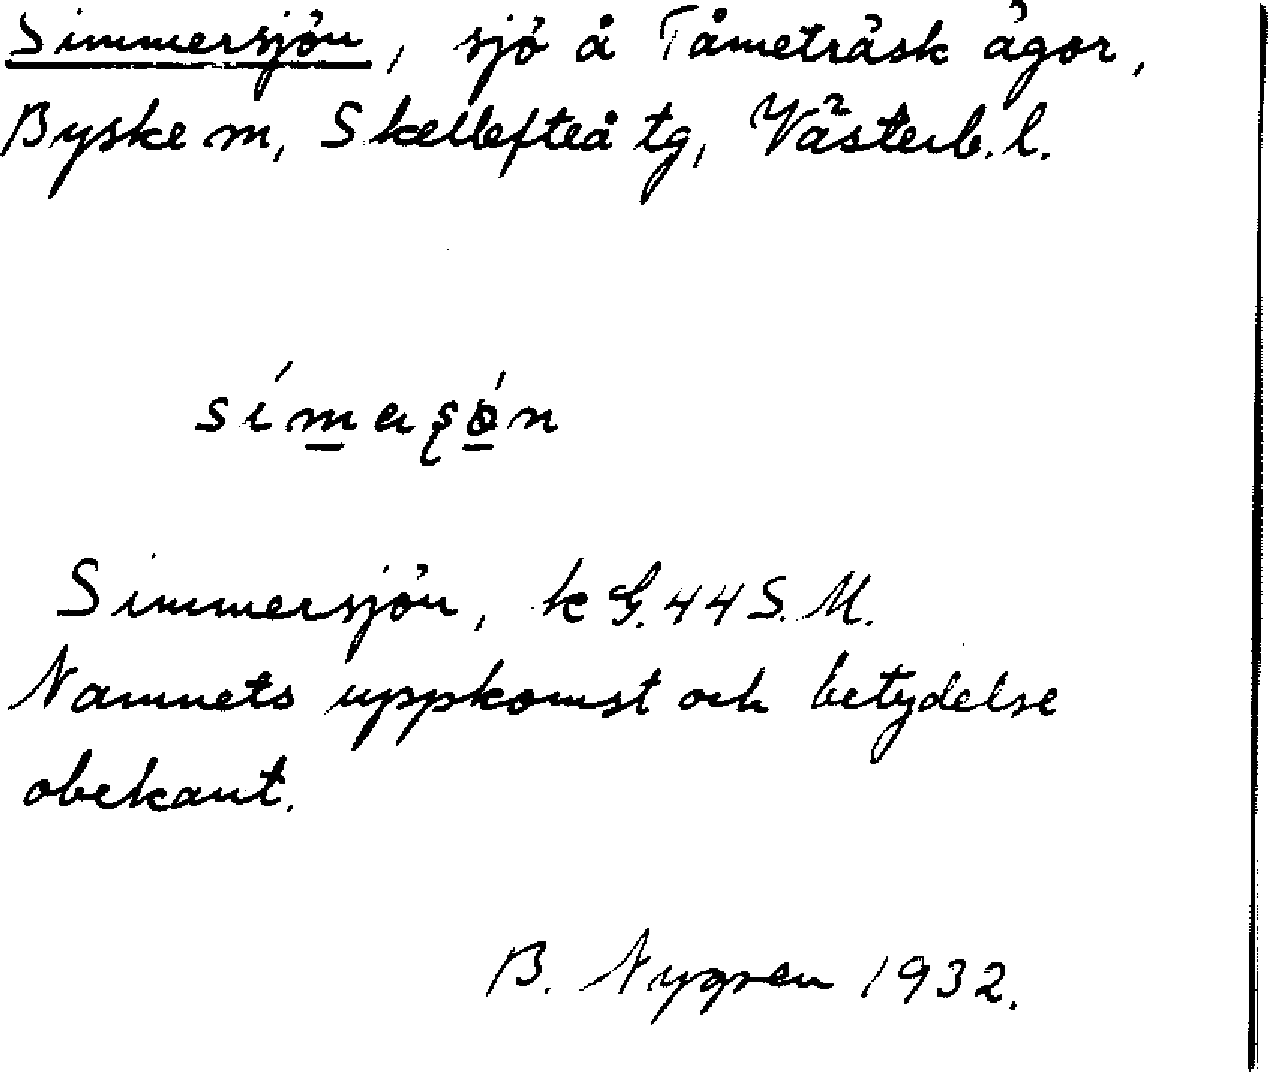 Simmersjön, sjö å Tåmeträsk ägor,
Byske sn, Skellefteå tg, Västerb. l.
Simmersjön, k G. 44 S. M.
Namnets uppkomst och betydelse
obekant.
B. Nygren 1932.